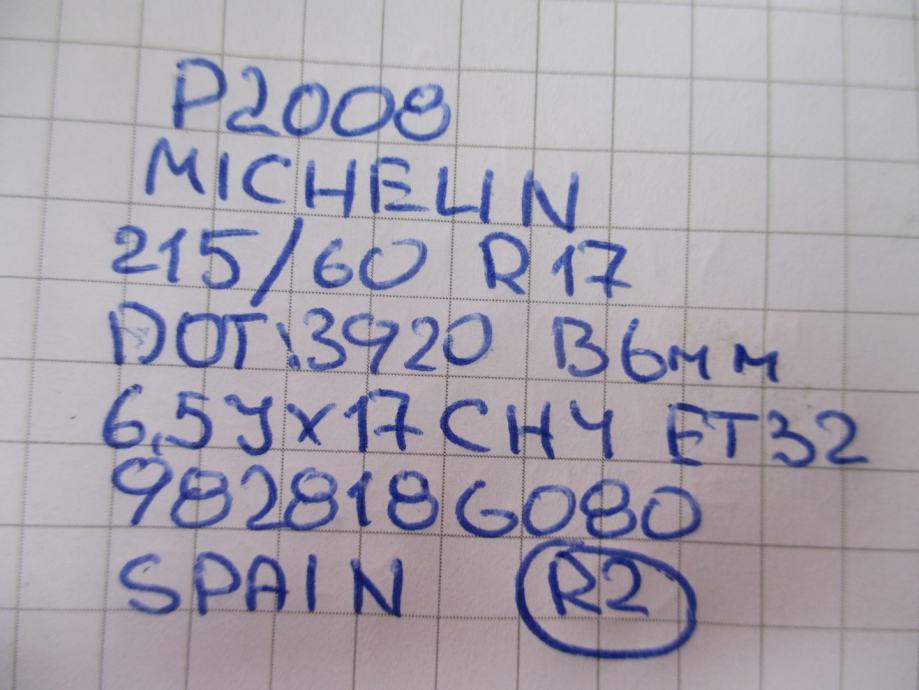 P2008
MICHELIN
215/60 R17
DOT:3920 B6mm
6,5Jx17 CH4 ET32
9828186080
SPAIN R2